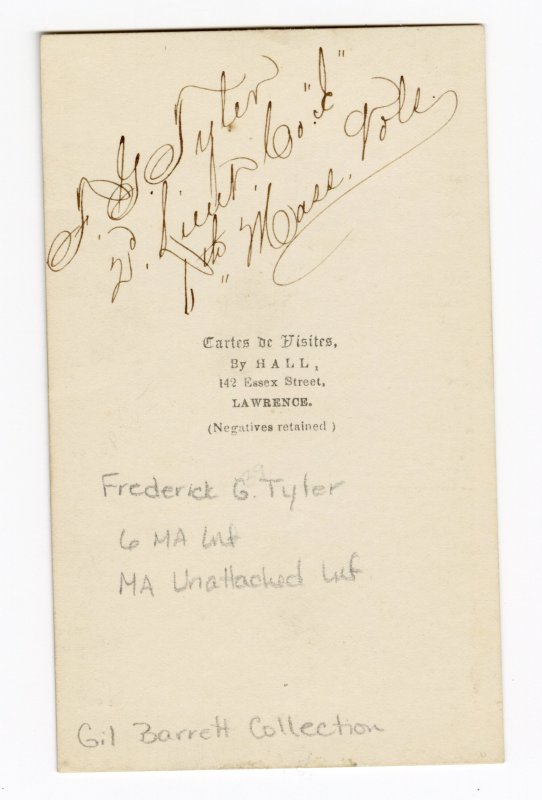 F. G. Tyler
2d. Lieut. Co. "I"
6th "Mass. Vols.
Cartes de Visites,
By HALL,
142 Essex Street,
LAWRENCE.
(Negatives retained)
Frederick G. Tyler
6 MA Inf
MA Unattached Inf
Gil Barrett Collection